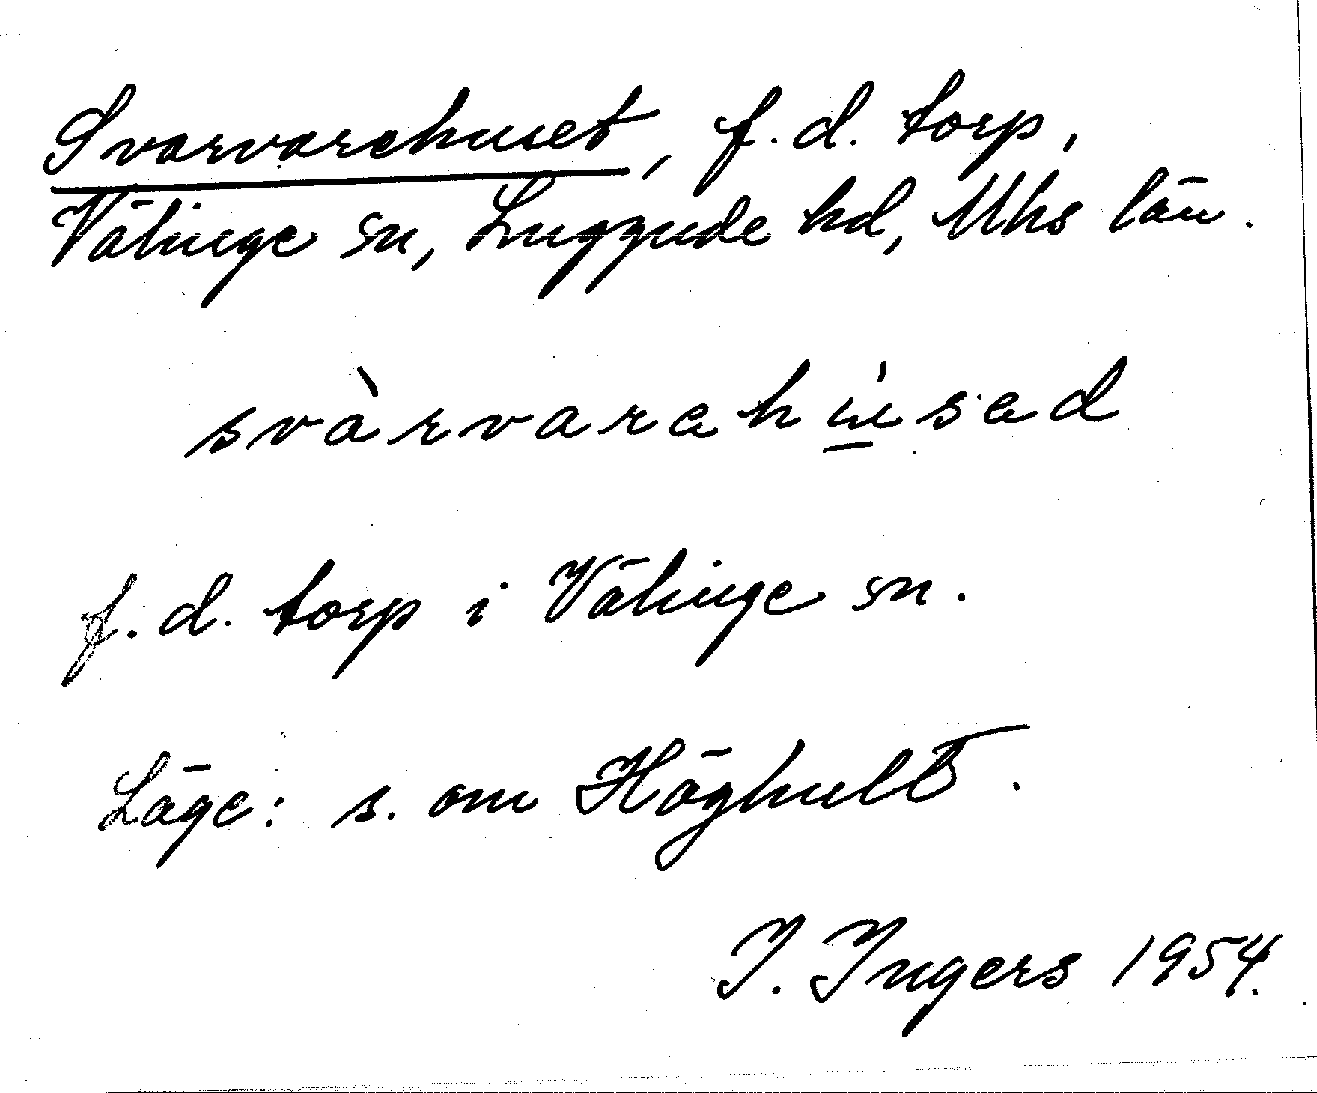 Svarvarehuset, f. d. torp,
Välinge sn, Luggude hd, Mhs län.
svàrvarehúsed
f. d. torp i Välinge sn.
Läge: s. om Höghult.
I. Ingers 1954.